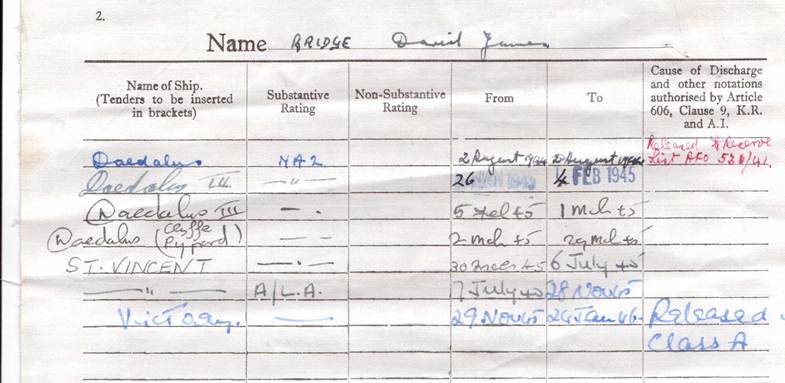 2.
Name BRIDGE David James
Name of Ship. (Tenders to be inserted in brackets) Substantive Rating Non-Substantive Rating From To Cause of Discharge and other notations authorised by Article 606, Clause 9, K.R. and A.I.
Daedalus NA2 2 August 1944 August 1944 Released to Reserve List AFO 528/41.
Daedalus III —"— 26 JAN 1945 4 FEB 1945
Daedalus III —"— 5 Feb 45 1 Mch 45
Daedalus (Clyffe Pypard) —"— 2 Mch 45 29 Mch 45
ST. VINCENT —"— 30 45 6 July 45
—"— A/L.A. 7 July 45 28 Nov 45
Victory. — 29 Nov 45 24 Jan 46. Released
Class A